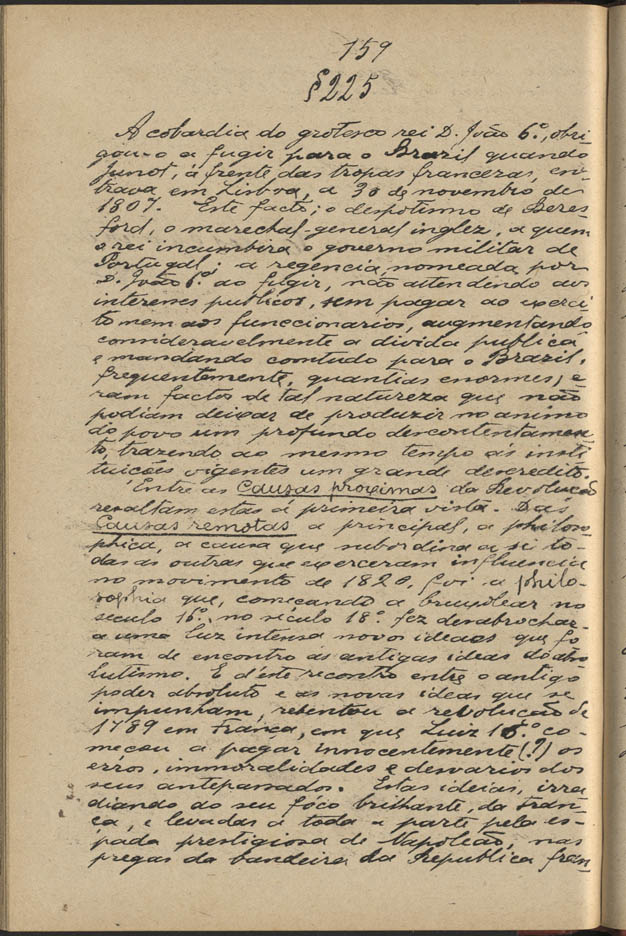 159
§225
A cobardia do grotesco rei D. João 6.º, obri
gou-o a fugir para o Brazil quando
Junot, á frente das tropas francezas, en-
trava em Lisboa, a 30 de novembro de
1807. Este facto; o despotismo de Beres
ford, o marechal-general inglez, a quem
o rei incumbira o governo militar de
Portugal; a regencia, nomeada por
D. João 6.º ao fugir, não attendendo aos
interesses publicos, sem pagar ao exerci
to nem aos funccionarios, augmentando
consideravelmente a divida publica
e mandando comtudo para o Brazil,
frequentemente, quantias enormes, e
ram factos de tal natureza que não
podiam deixar de produzir no animo
do povo um profundo descontentamen
to, trazendo ao mesmo tempo ás insti
tuições vigentes um grande descredito.
Entre as Causas proximas da Revolução
resaltam estas á primeira vista. Das
Causas remotas a principal, a philoso
phica, a causa que subordina a si to-
das as outras que exerceram influencia
no movimento de 1820, foi a philo-
sophia que, começando a bruxolear no
seculo 16.º, no século 18.º fez desabrochar
a uma luz intensa novas ideas que fo
ram de encontro ás antigas ideas do abso
lutismo. E d'éste recontro entre o antigo
poder absoluto e as novas ideas que se
impunham, rebentou a revolução de
1789 em França, em que Luiz 16.º co-
meçou a pagar innocentemente (?) os
erros, immoralidades e desvarios dos
seus antepassados. Estas ideias, irra
diando do seu fóco brilhante, da Fran-
ça, e levadas a toda a parte pela es-
pada prestigiosa de Napoleão, nas
pregas da bandeira da Republica fran